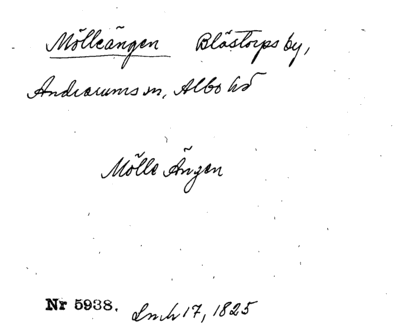 Mölleängen Blästorps by,
Andrarums sn, Albo hd
Mölle Ängen
Nr 5938. Lmh 17, 1825